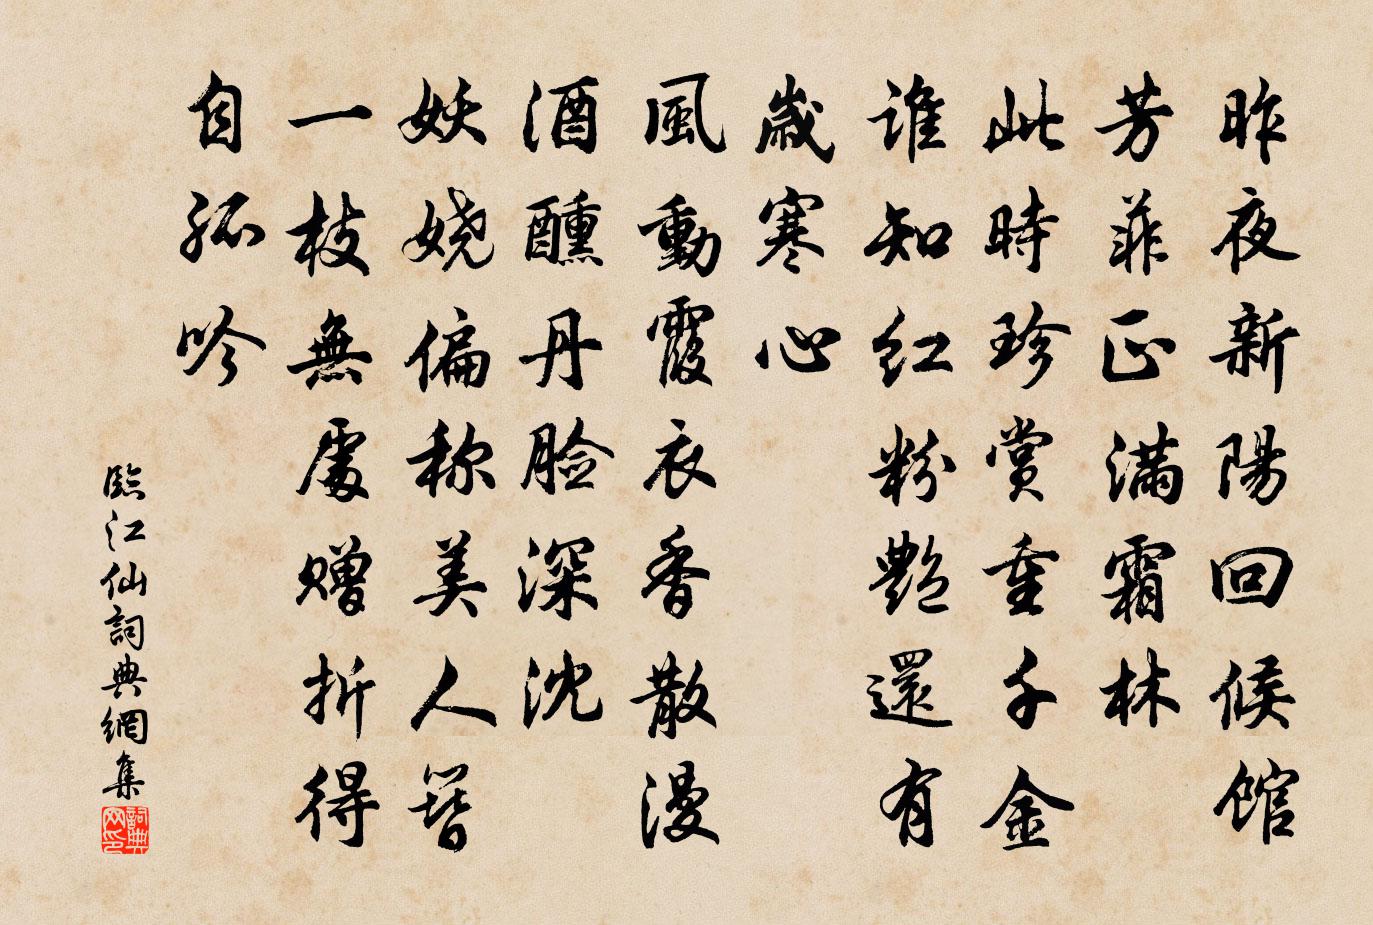 昨夜新陽回候館
芳菲正満霜林
此時珍賞重千金
谁知红粉艷還有
歳寒心
風動霞衣香散漫
酒醺丹脸深沈
妖娆偏称美人簪
一枝無處赠折得
自孤吟
臨江仙詞典網集
詞典
网印